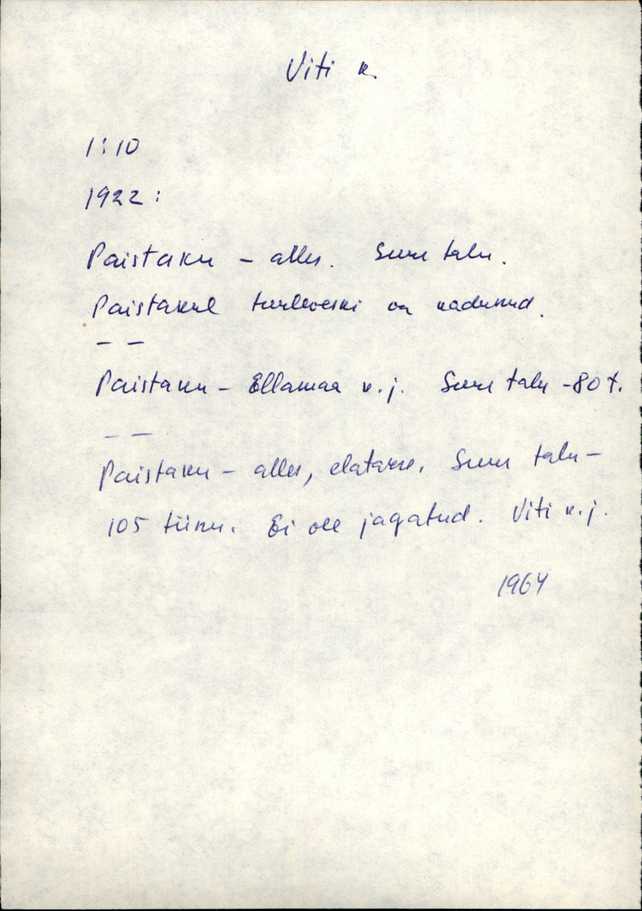 Viti k.
1:10
1922:
Paistaku – alles. Suur talu.
Paistakul tuuleveski on kadunud.
— —
Paistaku – Ellamaa k.j. Suur talu – 80 t.
— —
Paistaku – alles, elatakse. Suur talu –
105 tiinu. Ei ole jagatud. Viti k.j.
1964